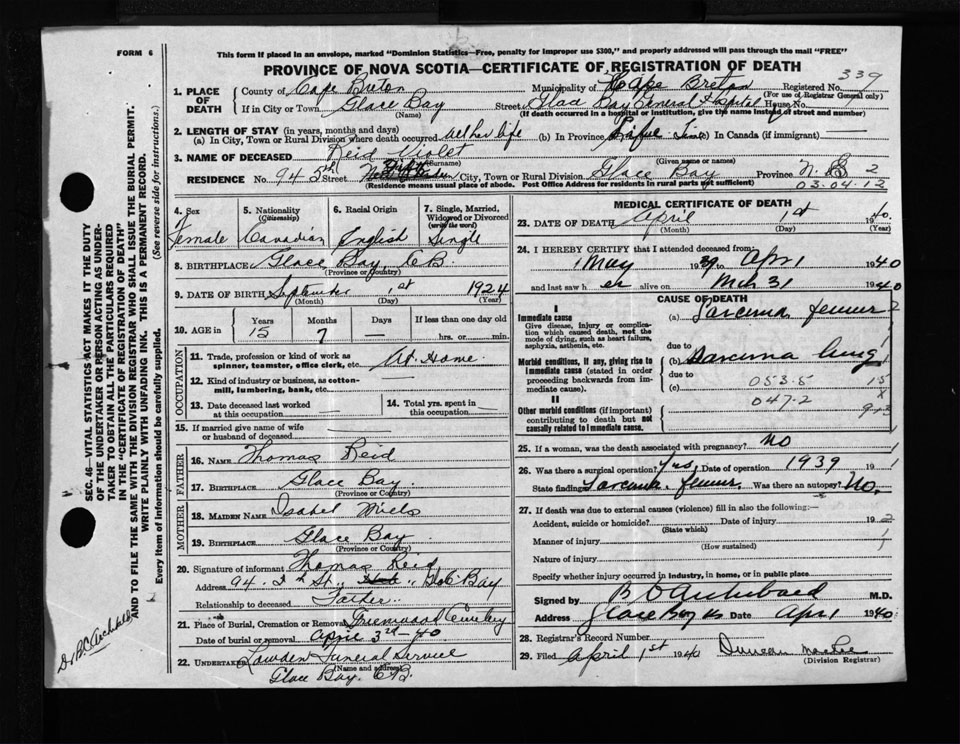 FORM 6
This form if placed in an envelope, marked "Dominion Statistics—Free, penalty for improper use $300," and properly addressed will pass through the mail "FREE"
PROVINCE OF NOVA SCOTIA—CERTIFICATE OF REGISTRATION OF DEATH
339
1. PLACE OF DEATH
County of Cape Breton Municipality of Cape Breton Registered No.
(For use of Registrar General only)
If in City or Town Glace Bay Street Glace Bay General Hospital House No.
(Name) (If death occurred in a hospital or institution, give the name instead of street and number)
2. LENGTH OF STAY (in years, months and days)
(a) In City, Town or Rural Division where death occurred all her life (b) In Province Life Time (c) In Canada (if immigrant) —
3. NAME OF DECEASED Reid Violet
(Surname) (Given name or names)
RESIDENCE No. 94 5th Street City, Town or Rural Division Glace Bay Province N.S. 2
(Residence means usual place of abode. Post Office Address for residents in rural parts not sufficient)
03.04.12
4. Sex Female
5. Nationality (Citizenship) Canadian
6. Racial Origin English
7. Single, Married, Widowed or Divorced (write the word) Single
8. BIRTHPLACE Glace Bay, C.B.
(Province or Country)
9. DATE OF BIRTH September 1st 1924
(Month) (Day) (Year)
10. AGE in Years Months Days If less than one day old
15 7 — hrs. or min.
OCCUPATION
11. Trade, profession or kind of work as spinner, teamster, office clerk, etc. At Home
12. Kind of industry or business, as cotton-mill, lumbering, bank, etc. —
13. Date deceased last worked at this occupation —
14. Total yrs. spent in this occupation —
15. If married give name of wife or husband of deceased
FATHER
16. NAME Thomas Reid
17. BIRTHPLACE Glace Bay
(Province or Country)
MOTHER
18. MAIDEN NAME Isabel
19. BIRTHPLACE Glace Bay
(Province or Country)
20. Signature of informant Thomas Reid
Address 94 5th St., Glace Bay
Relationship to deceased Father
21. Place of Burial, Cremation or Removal Greenwood Cemetery
Date of burial or removal April 3rd 40
22. Undertaker Lowden Funeral Service
(Name and address)
Glace Bay. C.B.
MEDICAL CERTIFICATE OF DEATH
23. DATE OF DEATH April 1st 1940.
(Month) (Day) (Year)
24. I HEREBY CERTIFY that I attended deceased from:
May 1939 to Apr 1 1940
and last saw her alive on Mch 31 1940
CAUSE OF DEATH
I
Immediate cause
Give disease, injury or complication which caused death, not the mode of dying, such as heart failure, asphyxia, asthenia, etc.
(a) Sarcoma femur 2
due to
Morbid conditions, if any, giving rise to immediate cause (stated in order proceeding backwards from immediate cause).
(b) Sarcoma lung 1
due to
(c) 053.5 15
II
047.2
Other morbid conditions (if important) contributing to death but not causally related to immediate cause.
25. If a woman, was the death associated with pregnancy? No 1
26. Was there a surgical operation? Yes Date of operation 1939 19 1
State findings Sarcoma femur. Was there an autopsy? No.
27. If death was due to external causes (violence) fill in also the following:—
Accident, suicide or homicide? Date of injury 19 2
(State which)
Manner of injury
(How sustained)
Nature of injury
Specify whether injury occurred in industry, in home, or in public place
Signed by B C Archibald M.D.
Address Glace Bay NS Date Apr 1 1940.
28. Registrar's Record Number
29. Filed April 1st 1940 Duncan
(Division Registrar)
SEC. 46—VITAL STATISTICS ACT MAKES IT THE DUTY OF THE UNDERTAKER OR PERSON ACTING AS UNDERTAKER TO OBTAIN ALL THE PARTICULARS REQUIRED IN THE "CERTIFICATE OF REGISTRATION OF DEATH" AND TO FILE THE SAME WITH THE DIVISION REGISTRAR WHO SHALL ISSUE THE BURIAL PERMIT.
WRITE PLAINLY WITH UNFADING INK. THIS IS A PERMANENT RECORD.
Every item of information should be carefully supplied. (See reverse side for instructions.)
Dr B.C. Archibald